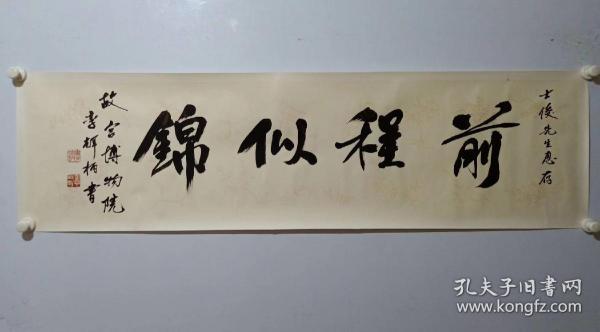 士俊先生惠存
前程似錦
故宫博物院
李輝柄書
孔夫子旧书网
www.kongfz.com